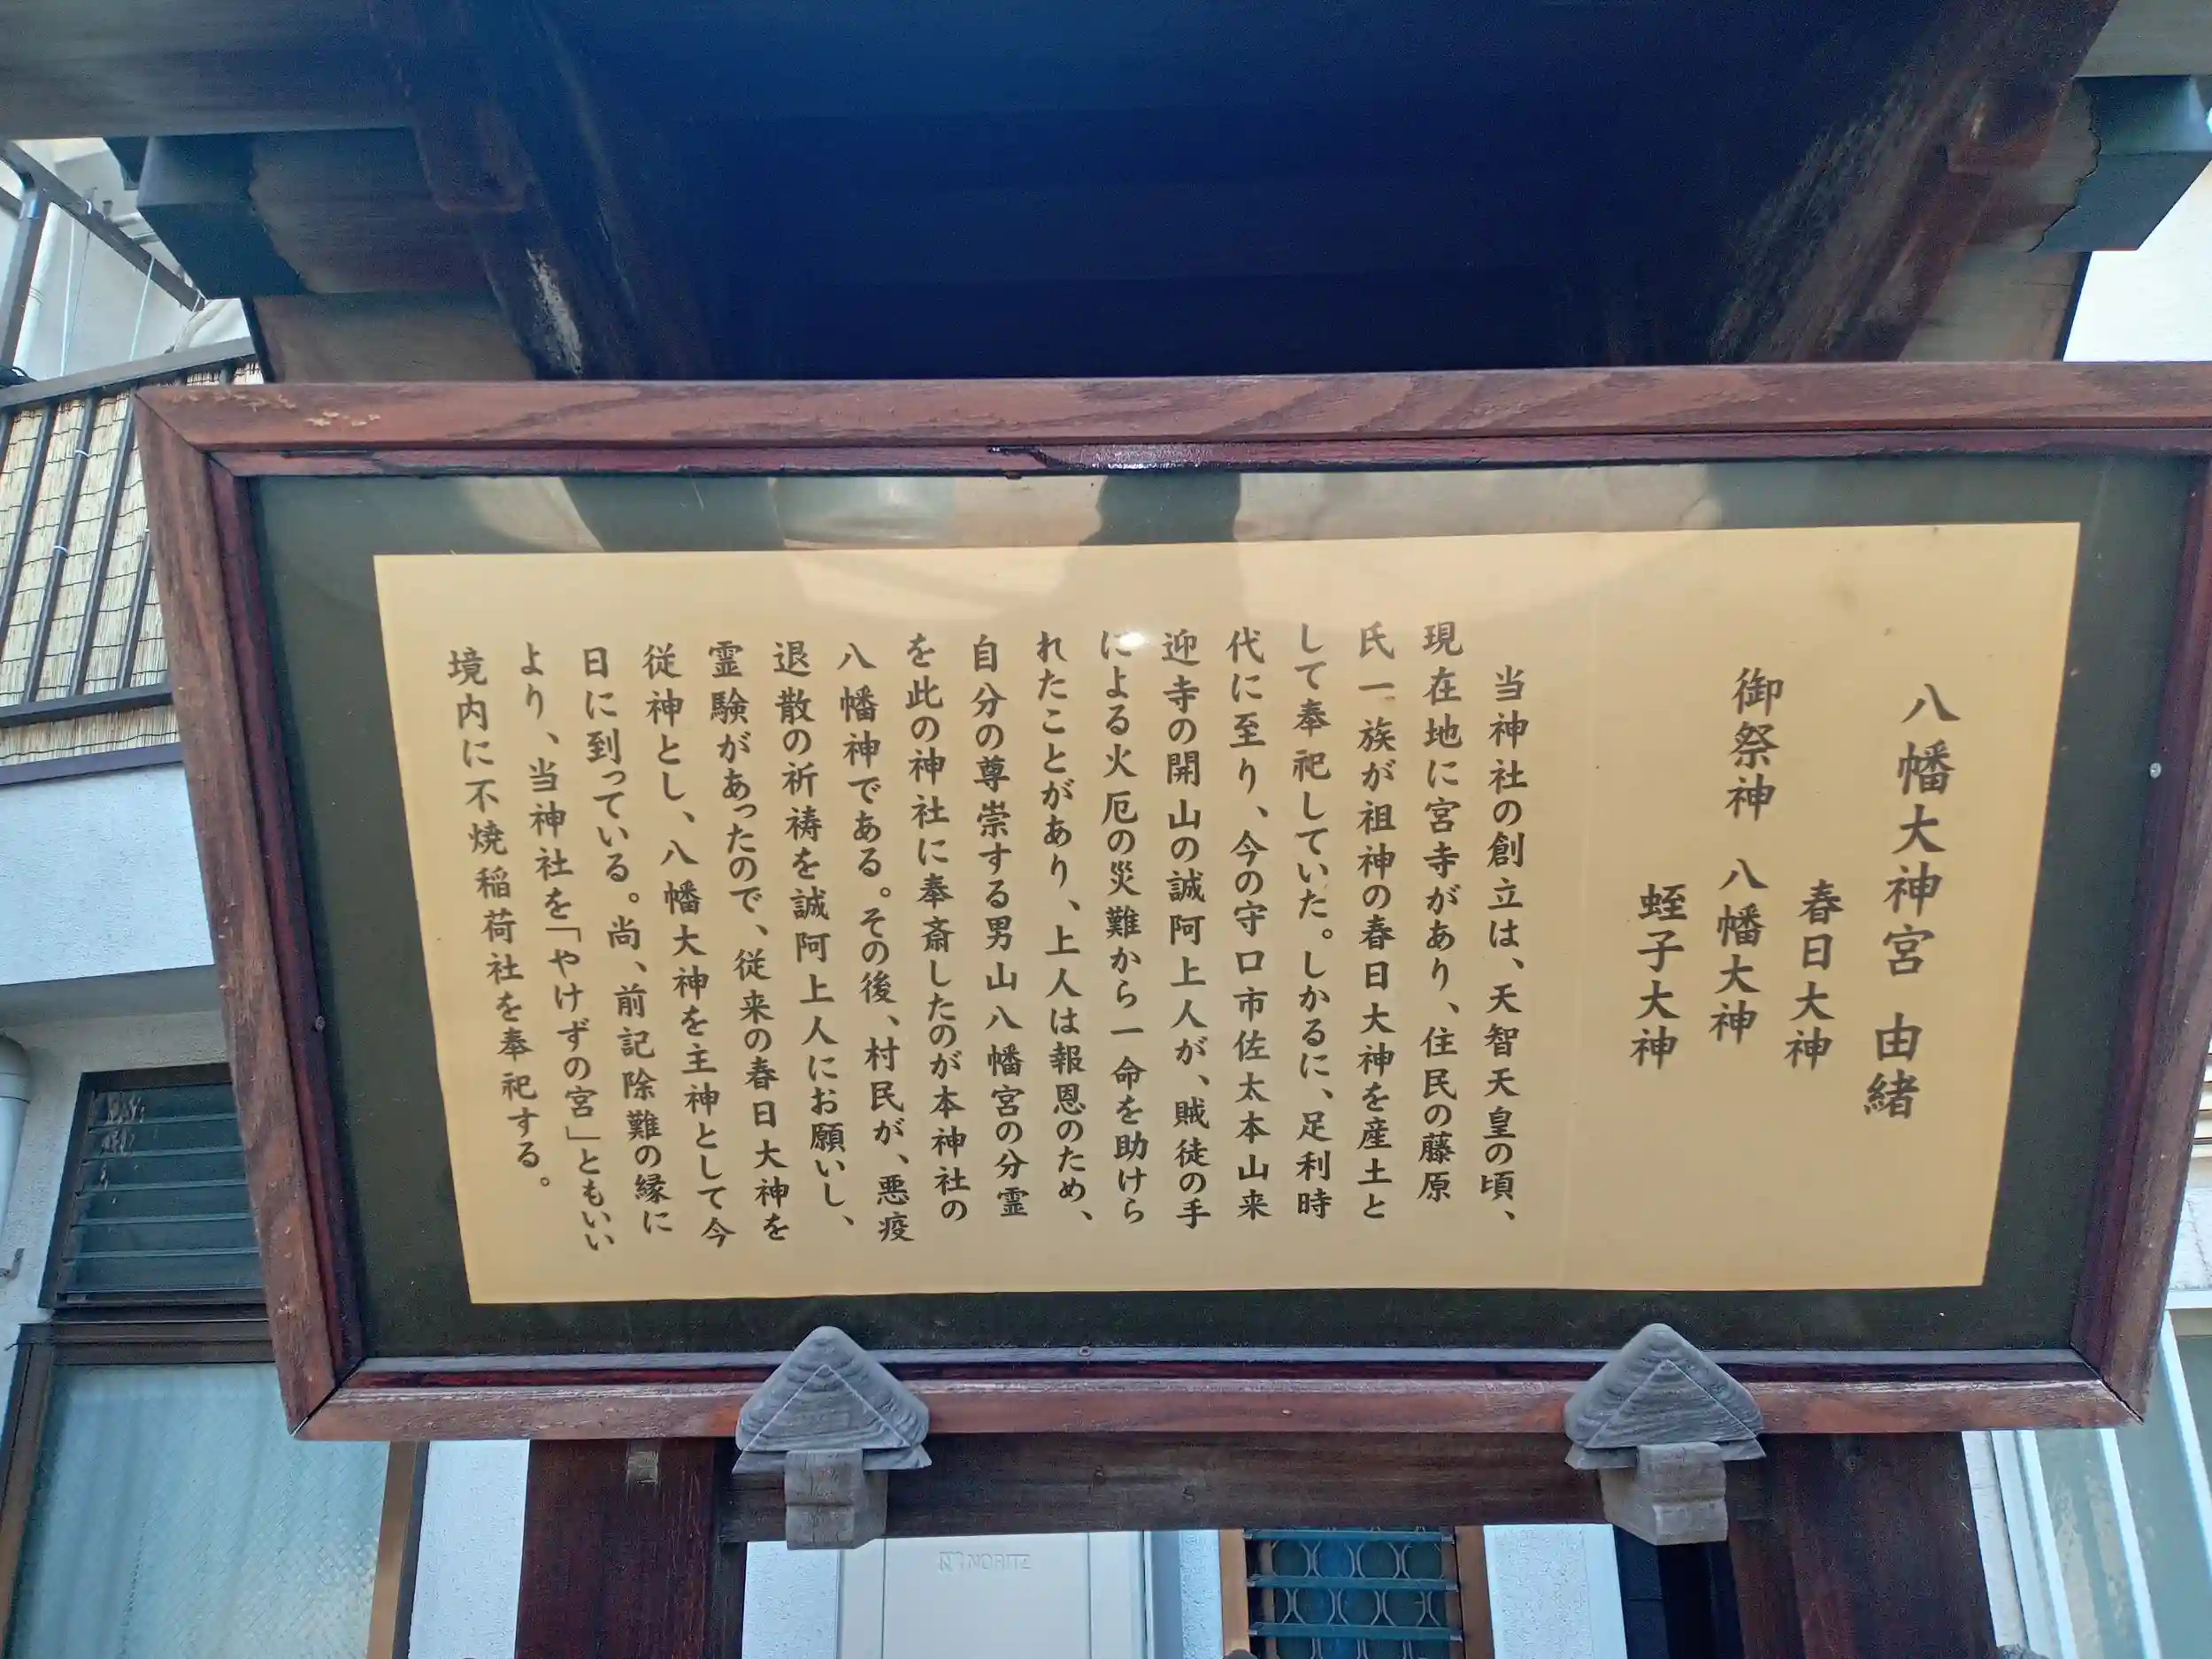 八幡大神宮 由緒
春日大神
御祭神 八幡大神
蛭子大神
当神社の創立は、天智天皇の頃、
現在地に宮寺があり、住民の藤原
氏一族が祖神の春日大神を産土と
して奉祀していた。しかるに、足利時
代に至り、今の守口市佐太本山来
迎寺の開山の誠阿上人が、賊徒の手
による火厄の災難から一命を助けら
れたことがあり、上人は報恩のため、
自分の尊崇する男山八幡宮の分霊
を此の神社に奉斎したのが本神社の
八幡神である。その後、村民が、悪疫
退散の祈祷を誠阿上人にお願いし、
霊験があったので、従来の春日大神を
従神とし、八幡大神を主神として今
日に到っている。尚、前記除難の縁に
より、当神社を「やけずの宮」ともいい
境内に不焼稲荷社を奉祀する。
NORITZ